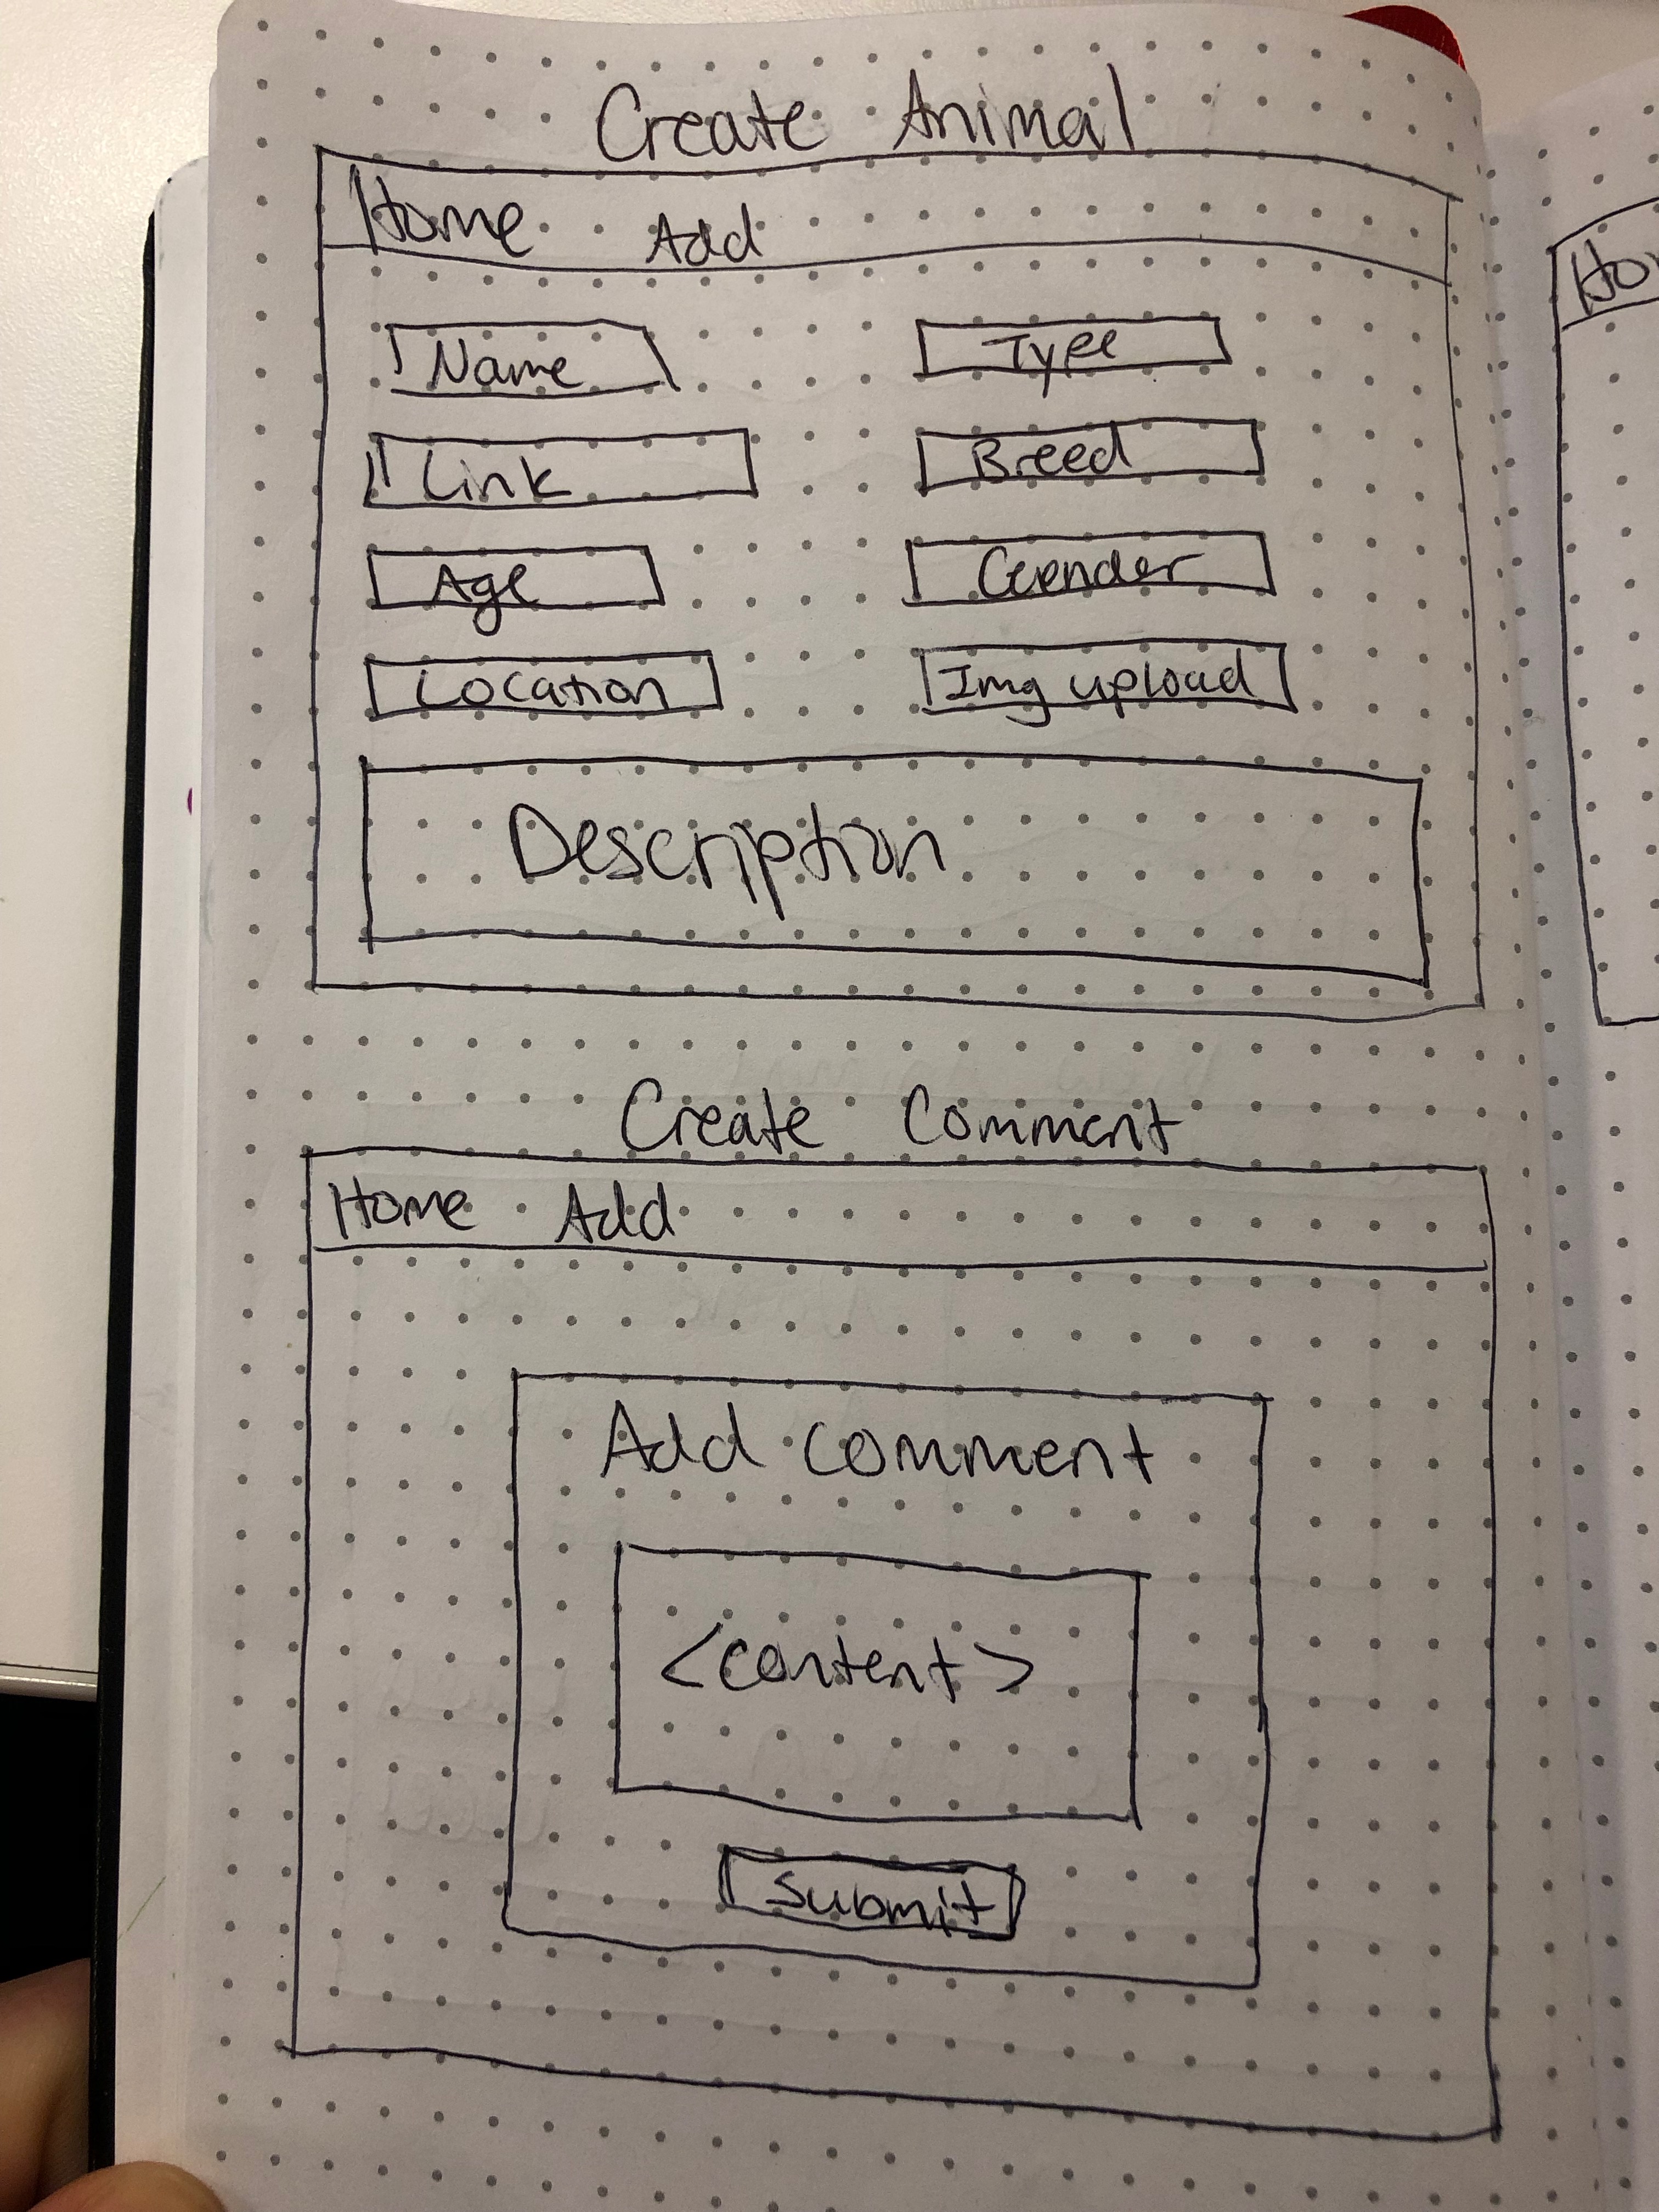 Create Animal
Home Add
Name Type
Link Breed
Age Gender
Location Img upload
Description
Create Comment
Home Add
Add comment
<content>
Submit